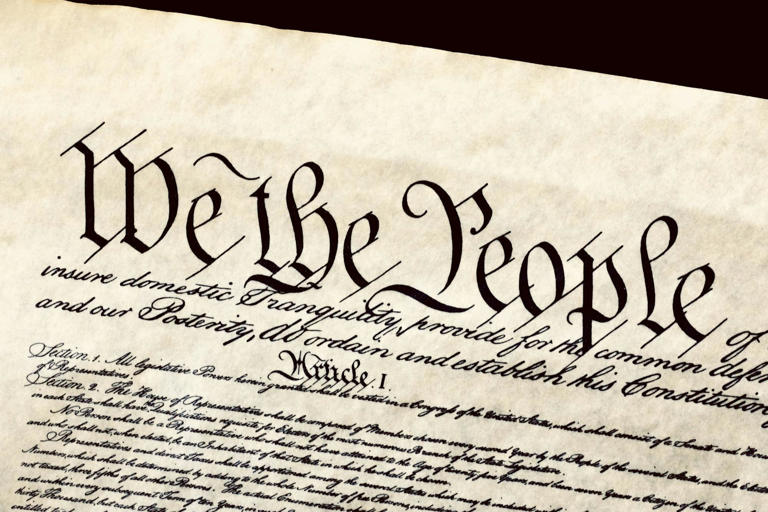 We the People of
insure domestic Tranquility, provide for the common defen
and our Posterity, do ordain and establish this Constitution
Article I.
Section. 1. All legislative Powers herein granted shall be vested in a Congress of the United States, which shall consist of a Senate and House
of Representatives.
Section. 2. The House of Representatives shall be composed of Members chosen every second Year by the People of the several States, and the Electors
in each State shall have the Qualifications requisite for Electors of the most numerous Branch of the State Legislature.
No Person shall be a Representative who shall not have attained to the Age of twenty five Years, and been seven Years a Citizen of the United States,
and who shall not, when elected, be an Inhabitant of that State in which he shall be chosen.
Representatives and direct Taxes shall be apportioned among the several States which may be included within
Numbers, which shall be determined by adding to the whole Number of free Persons, including
not taxed, three fifths of all other Persons. The actual Enumeration shall be made
and within every subsequent Term of ten Years, in such
thirty Thousand, but each State
entitled to